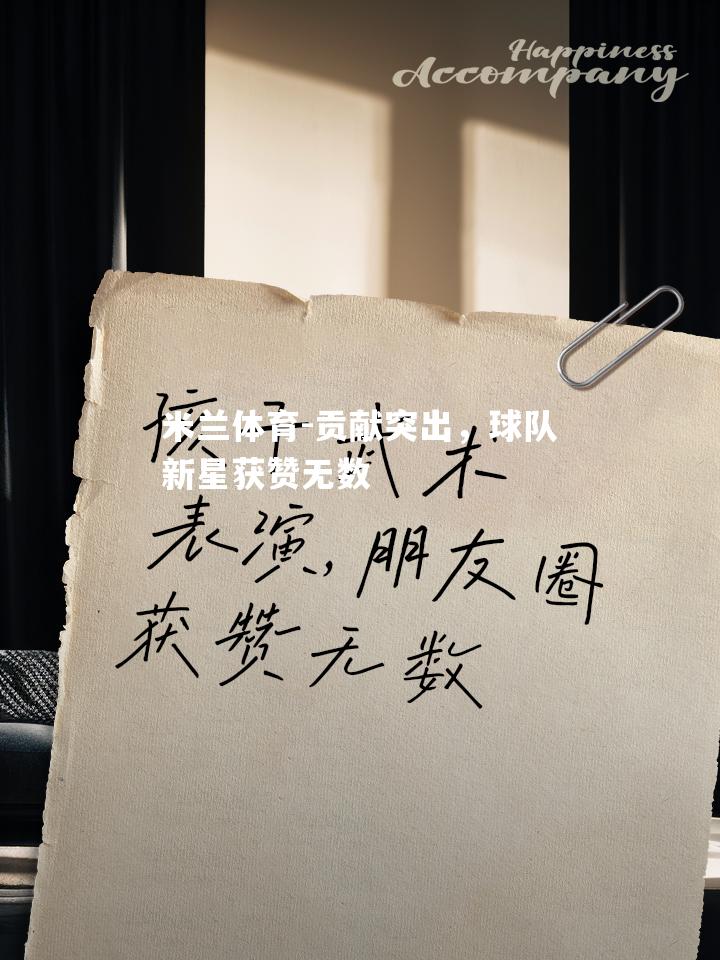 Happiness
Accompany
米兰体育-贡献突出，球队
新星获赞无数
孩子武术
表演，朋友圈
获赞无数